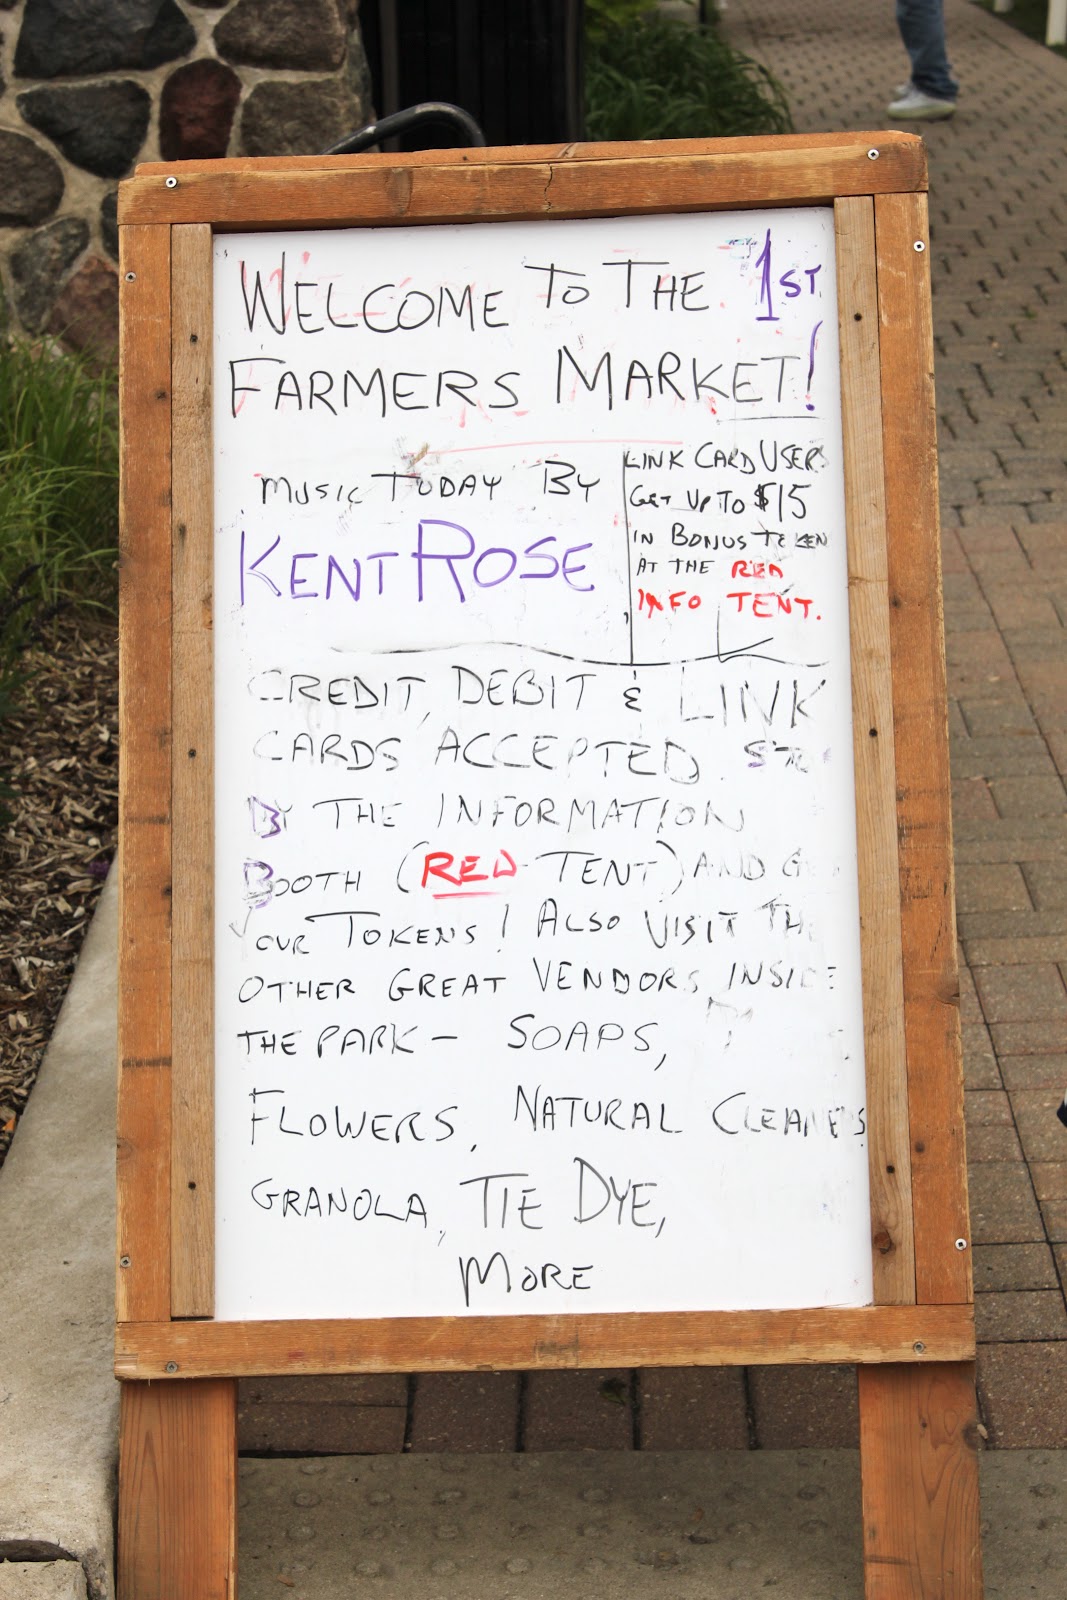 WELCOME TO THE 1ST
FARMERS MARKET!
MUSIC TODAY BY
KENT ROSE
LINK CARD USERS
GET UP TO $15
IN BONUS TOKEN
AT THE RED
INFO TENT.
CREDIT, DEBIT & LINK
CARDS ACCEPTED.
BY THE INFORMATION
BOOTH (RED TENT) AND
OUR TOKENS! ALSO VISIT THE
OTHER GREAT VENDORS INSIDE
THE PARK - SOAPS,
FLOWERS, NATURAL CLEANERS
GRANOLA, TIE DYE,
MORE